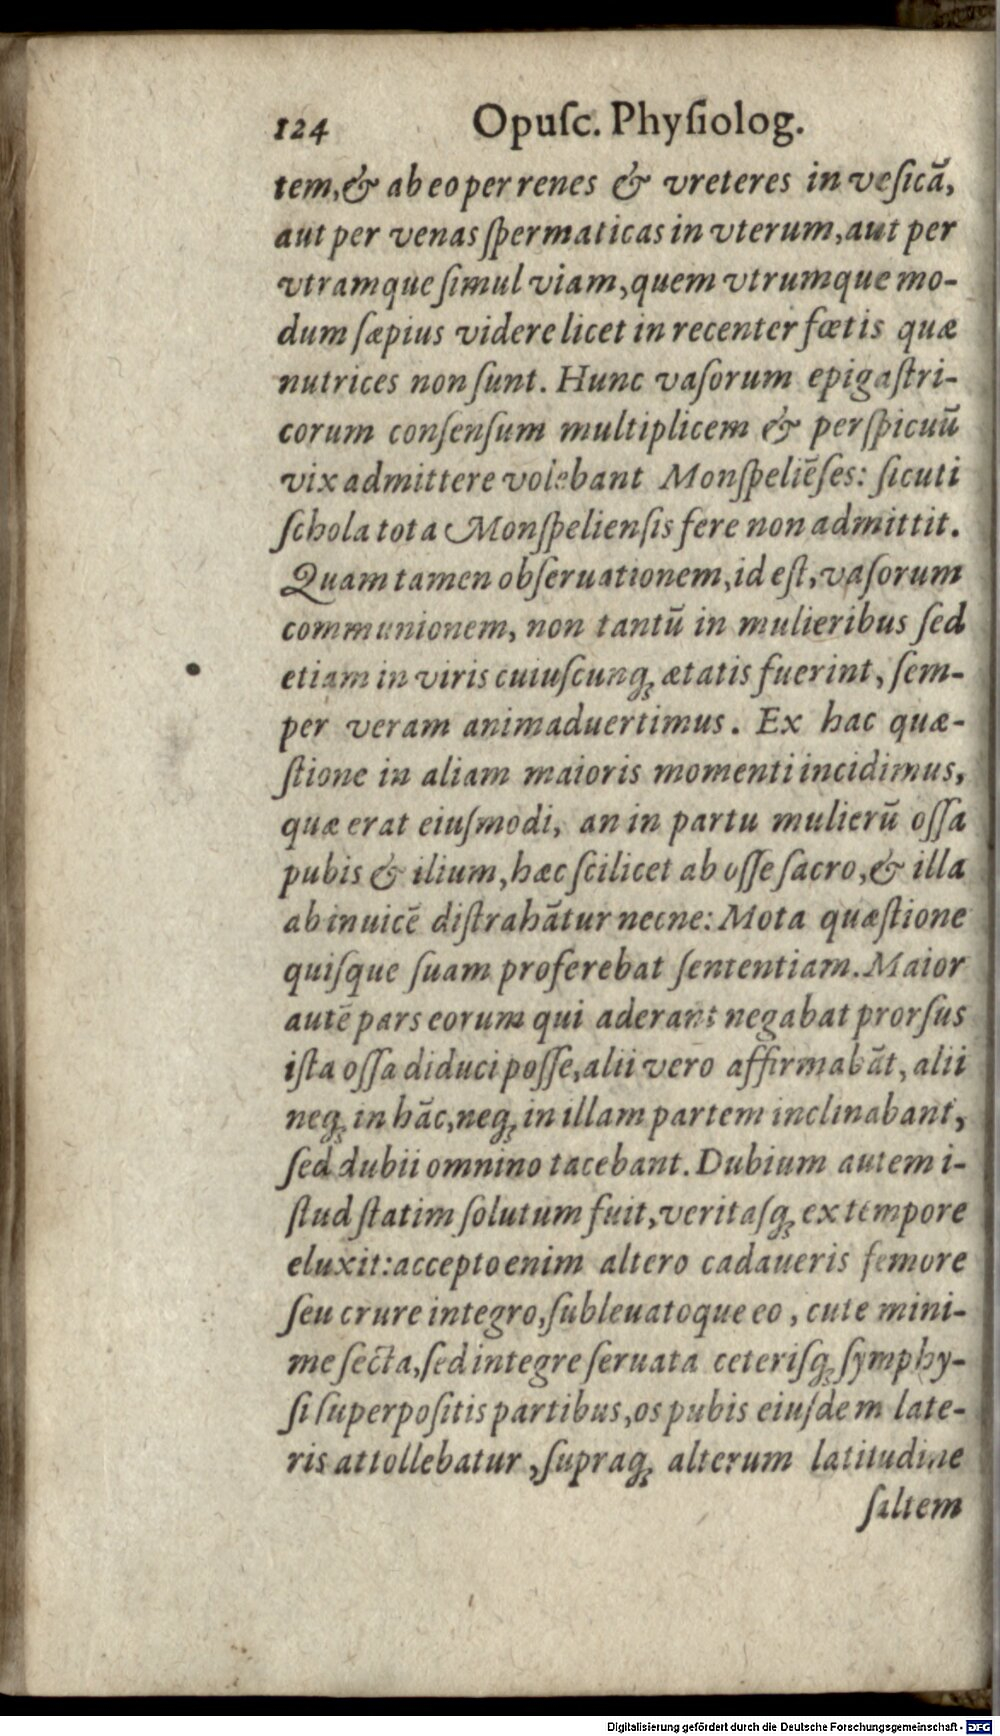 124 Opuſc. Phyſiolog.
tem, & ab eo per renes & vreteres in veſicã,
aut per venas ſpermaticas in vterum, aut per
vtramque ſimul viam, quem vtrumque mo-
dum ſæpius videre licet in recenter fœtis quæ
nutrices non ſunt. Hunc vaſorum epigaſtri-
corum conſenſum multiplicem & perſpicuũ
vix admittere volebant Monſpeliẽſes: ſicuti
ſchola tota Monſpelienſis fere non admittit.
Quam tamen obſeruationem, id eſt, vaſorum
communionem, non tantũ in mulieribus ſed
etiam in viris cuiuſcunq; ætatis fuerint, ſem-
per veram animaduertimus. Ex hac quæ-
ſtione in aliam maioris momenti incidimus,
quæ erat eiuſmodi, an in partu mulierũ oſſa
pubis & ilium, hæc ſcilicet ab oſſe ſacro, & illa
ab inuicẽ diſtrahãtur necne: Mota quæſtione
quiſque ſuam proferebat ſententiam. Maior
autẽ pars eorum qui aderant negabat prorſus
iſta oſſa diduci poſſe, alii vero affirmabãt, alii
neq; in hãc, neq; in illam partem inclinabant,
ſed dubii omnino tacebant. Dubium autem i-
ſtud ſtatim ſolutum fuit, veritaſq; ex tempore
eluxit: accepto enim altero cadaueris femore
ſeu crure integro, ſubleuatoque eo, cute mini-
me ſecta, ſed integre ſeruata ceteriſq; ſymphy-
ſi ſuperpoſitis partibus, os pubis eiuſdem late-
ris attollebatur, ſupraq; alterum latitudine
ſaltem
Digitalisierung gefördert durch die Deutsche Forschungsgemeinschaft - DFG